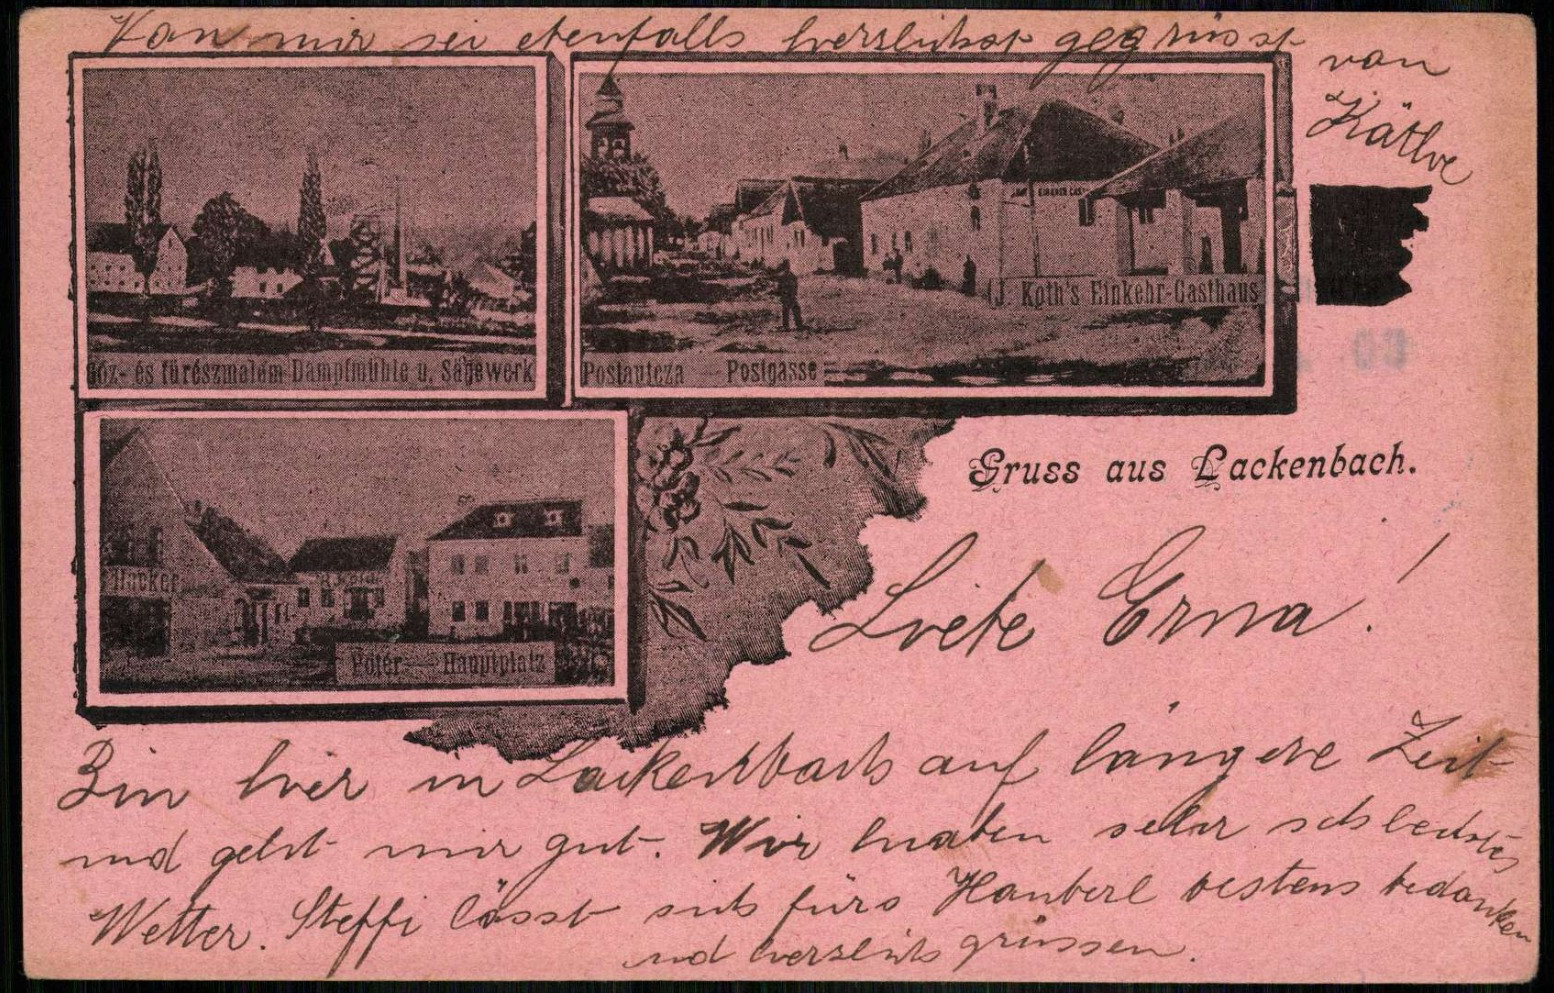 Von mir sei ebenfalls herzlichst gegrüsst
von
Käthe
Gőz- és fűrészmalom Dampfmühle u. Sägewerk
J. Koth's Einkehr-Gasthaus
Postautcza Postgasse
03
Gruss aus Lackenbach.
Hacker
Főtér Hauptplatz
Liebe Erna!
Bin hier in Lackenbach auf längere Zeit
und geht mir gut. Wir haben sehr schlechtes
Wetter. Steffi lässt sich fürs Hauberl bestens bedanken
und herzlich grüssen.